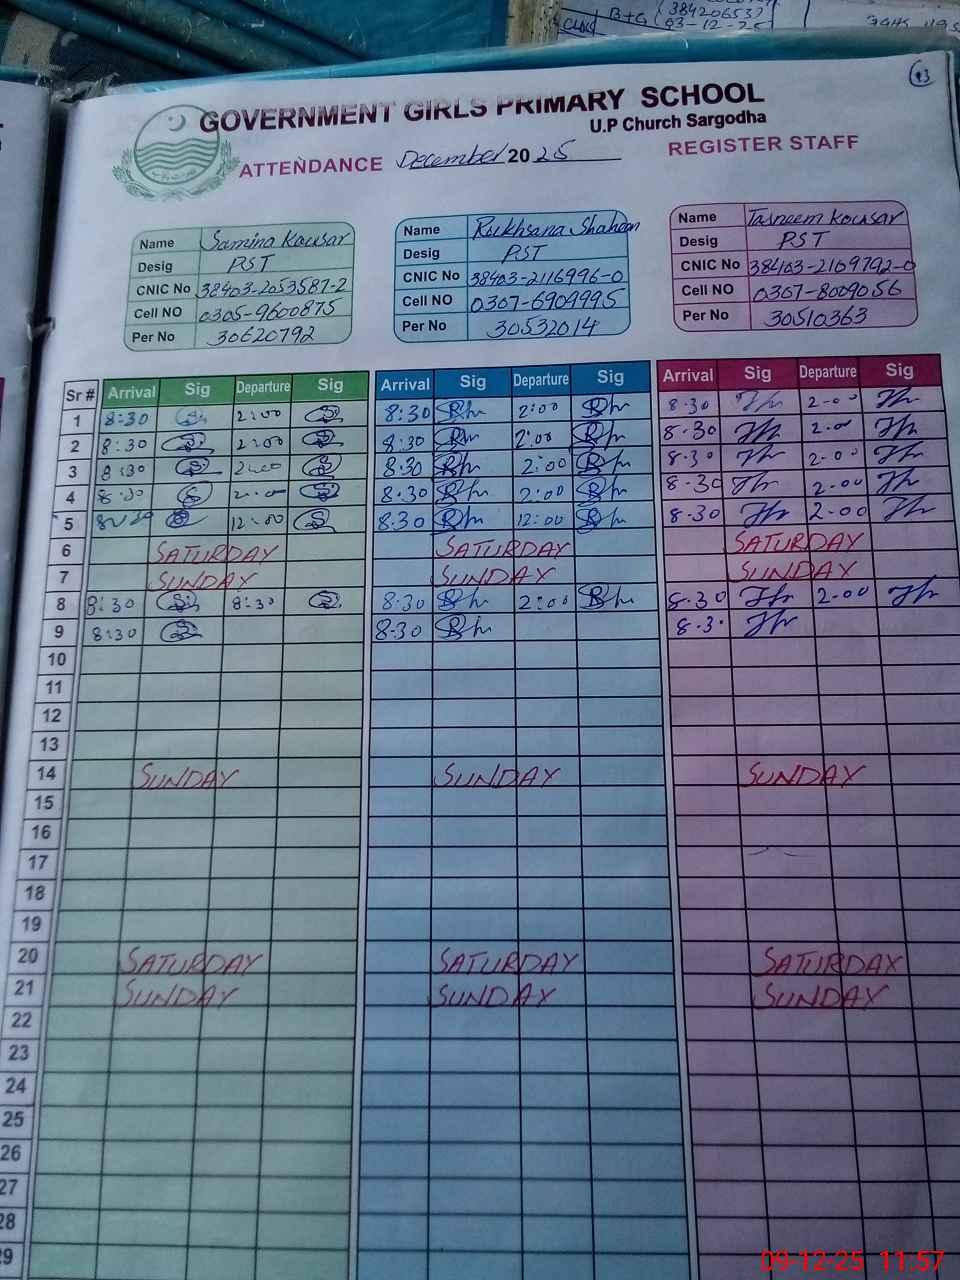 384206537
B+G 03-12-25
Class
93
GOVERNMENT GIRLS PRIMARY SCHOOL
U.P Church Sargodha
ATTENDANCE December 2025 REGISTER STAFF
Name Samina Kousar
Desig PST
CNIC No 38403-2053587-2
Cell NO 0305-9600875
Per No 30620792
Name Rukhsana Shaheen
Desig PST
CNIC No 38403-2116996-0
Cell NO 0307-6909995
Per No 30532014
Name Tasneem Kousar
Desig PST
CNIC No 38403-2109792-0
Cell NO 0307-8009056
Per No 30510363
Sr # Arrival Sig Departure Sig Arrival Sig Departure Sig Arrival Sig Departure Sig
1 8:30 2:00 8:30 2:00 8-30 2-00
2 8:30 2:00 8:30 2:00 8-30 2-00
3 8:30 2:00 8.30 2:00 8-30 2-00
4 8:30 2:00 8.30 2:00 8-30 2-00
5 12:00 8.30 12:00 8-30 2-00
6 SATURDAY SATURDAY SATURDAY
7 SUNDAY SUNDAY SUNDAY
8 8:30 8:30 8:30 2:00 8-30 2-00
9 8:30 8-30 8-30
10
11
12
13
14 SUNDAY SUNDAY SUNDAY
15
16
17
18
19
20 SATURDAY SATURDAY SATURDAY
21 SUNDAY SUNDAY SUNDAY
22
23
24
25
26
27
28
29
09-12-25 11.57